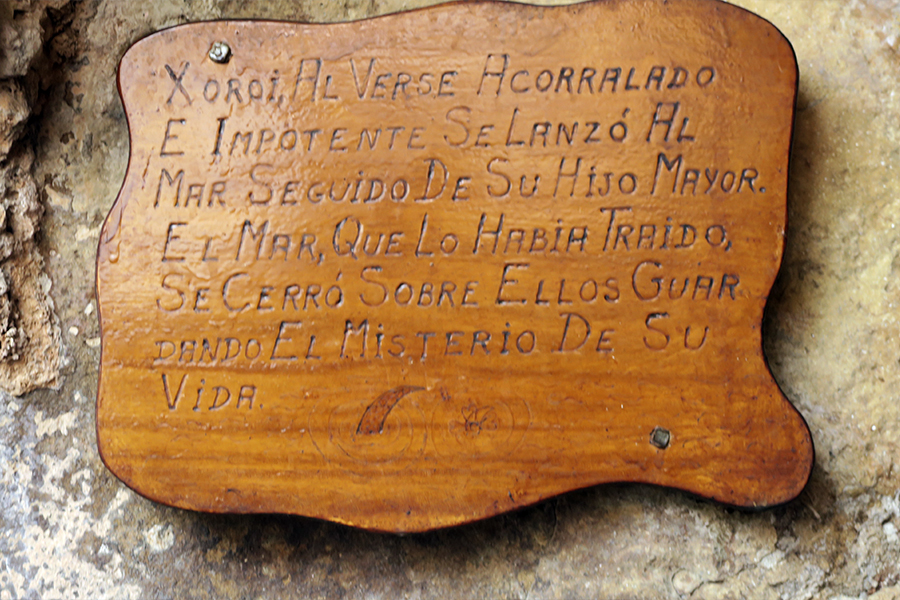 Xoroi, Al Verse Acorralado
E Impotente Se Lanzó Al
Mar Seguido De Su Hijo Mayor.
El Mar, Que Lo Habia Traido,
Se Cerró Sobre Ellos Guar
dando El Misterio De Su
Vida.